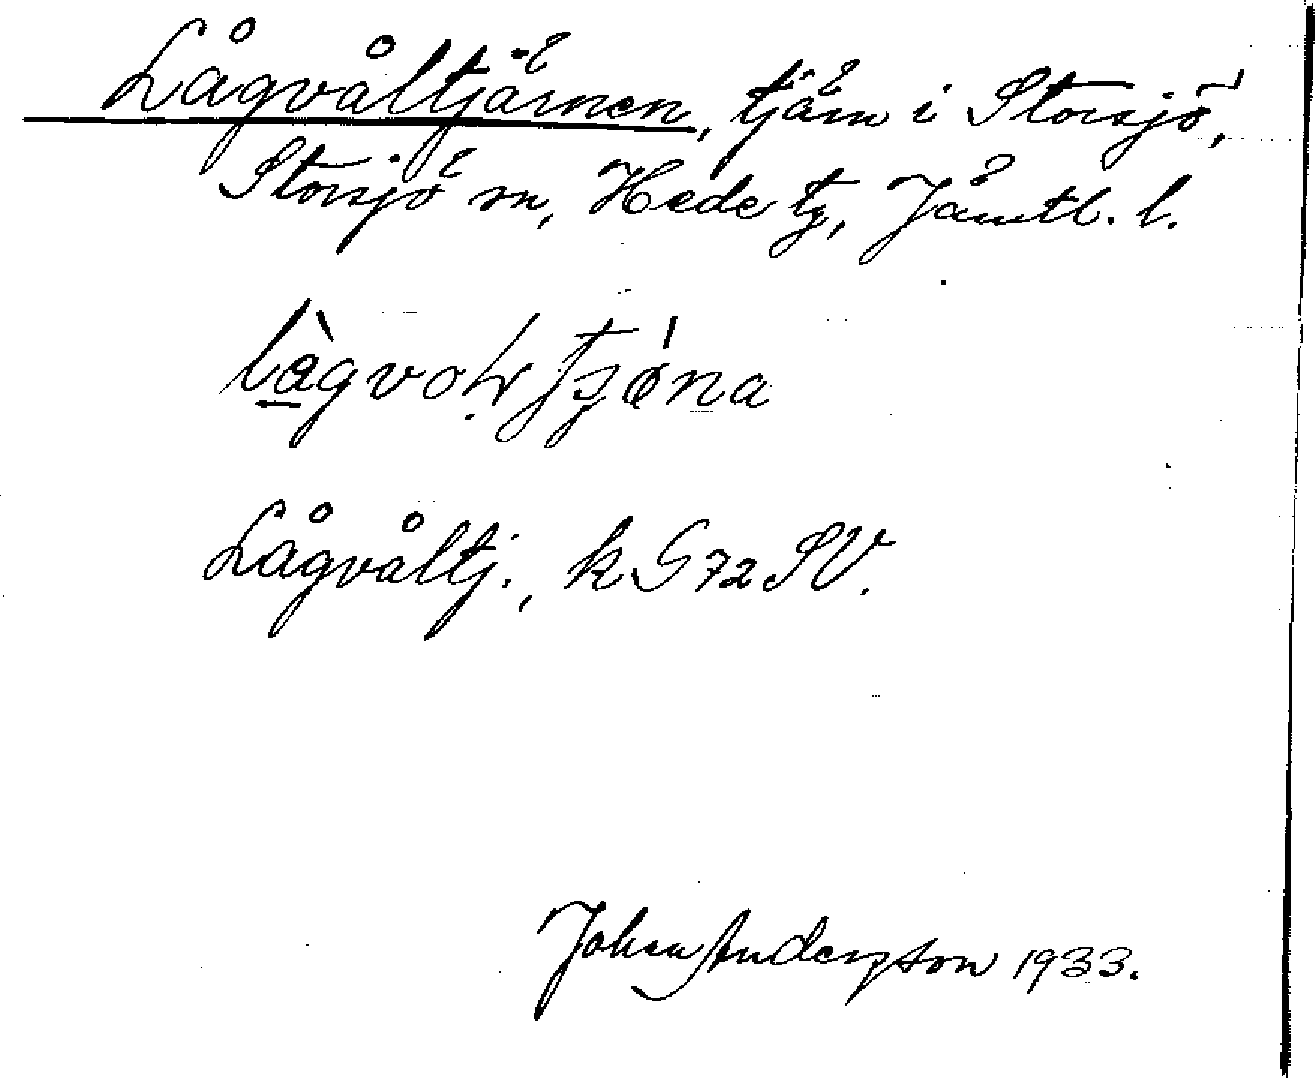 Lågvåltjärnen, tjärn i Storsjö,
Storsjö sn, Hede tg, Jämtl. l.
Lågvåltj., k G 72 SV.
Johan Anderson 1933.